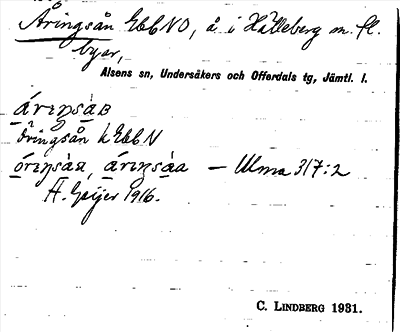 Åringsån EbbNO, å i Hälleberg m. fl.
byar,
Alsens sn, Undersåkers och Offerdals tg, Jämtl. l.
áriŋsàʙ
öringsån k EbbN
òriŋsàa, áriŋsàa — Ulma 317:2
Å. Geijer 1916.
C. LINDBERG 1931.